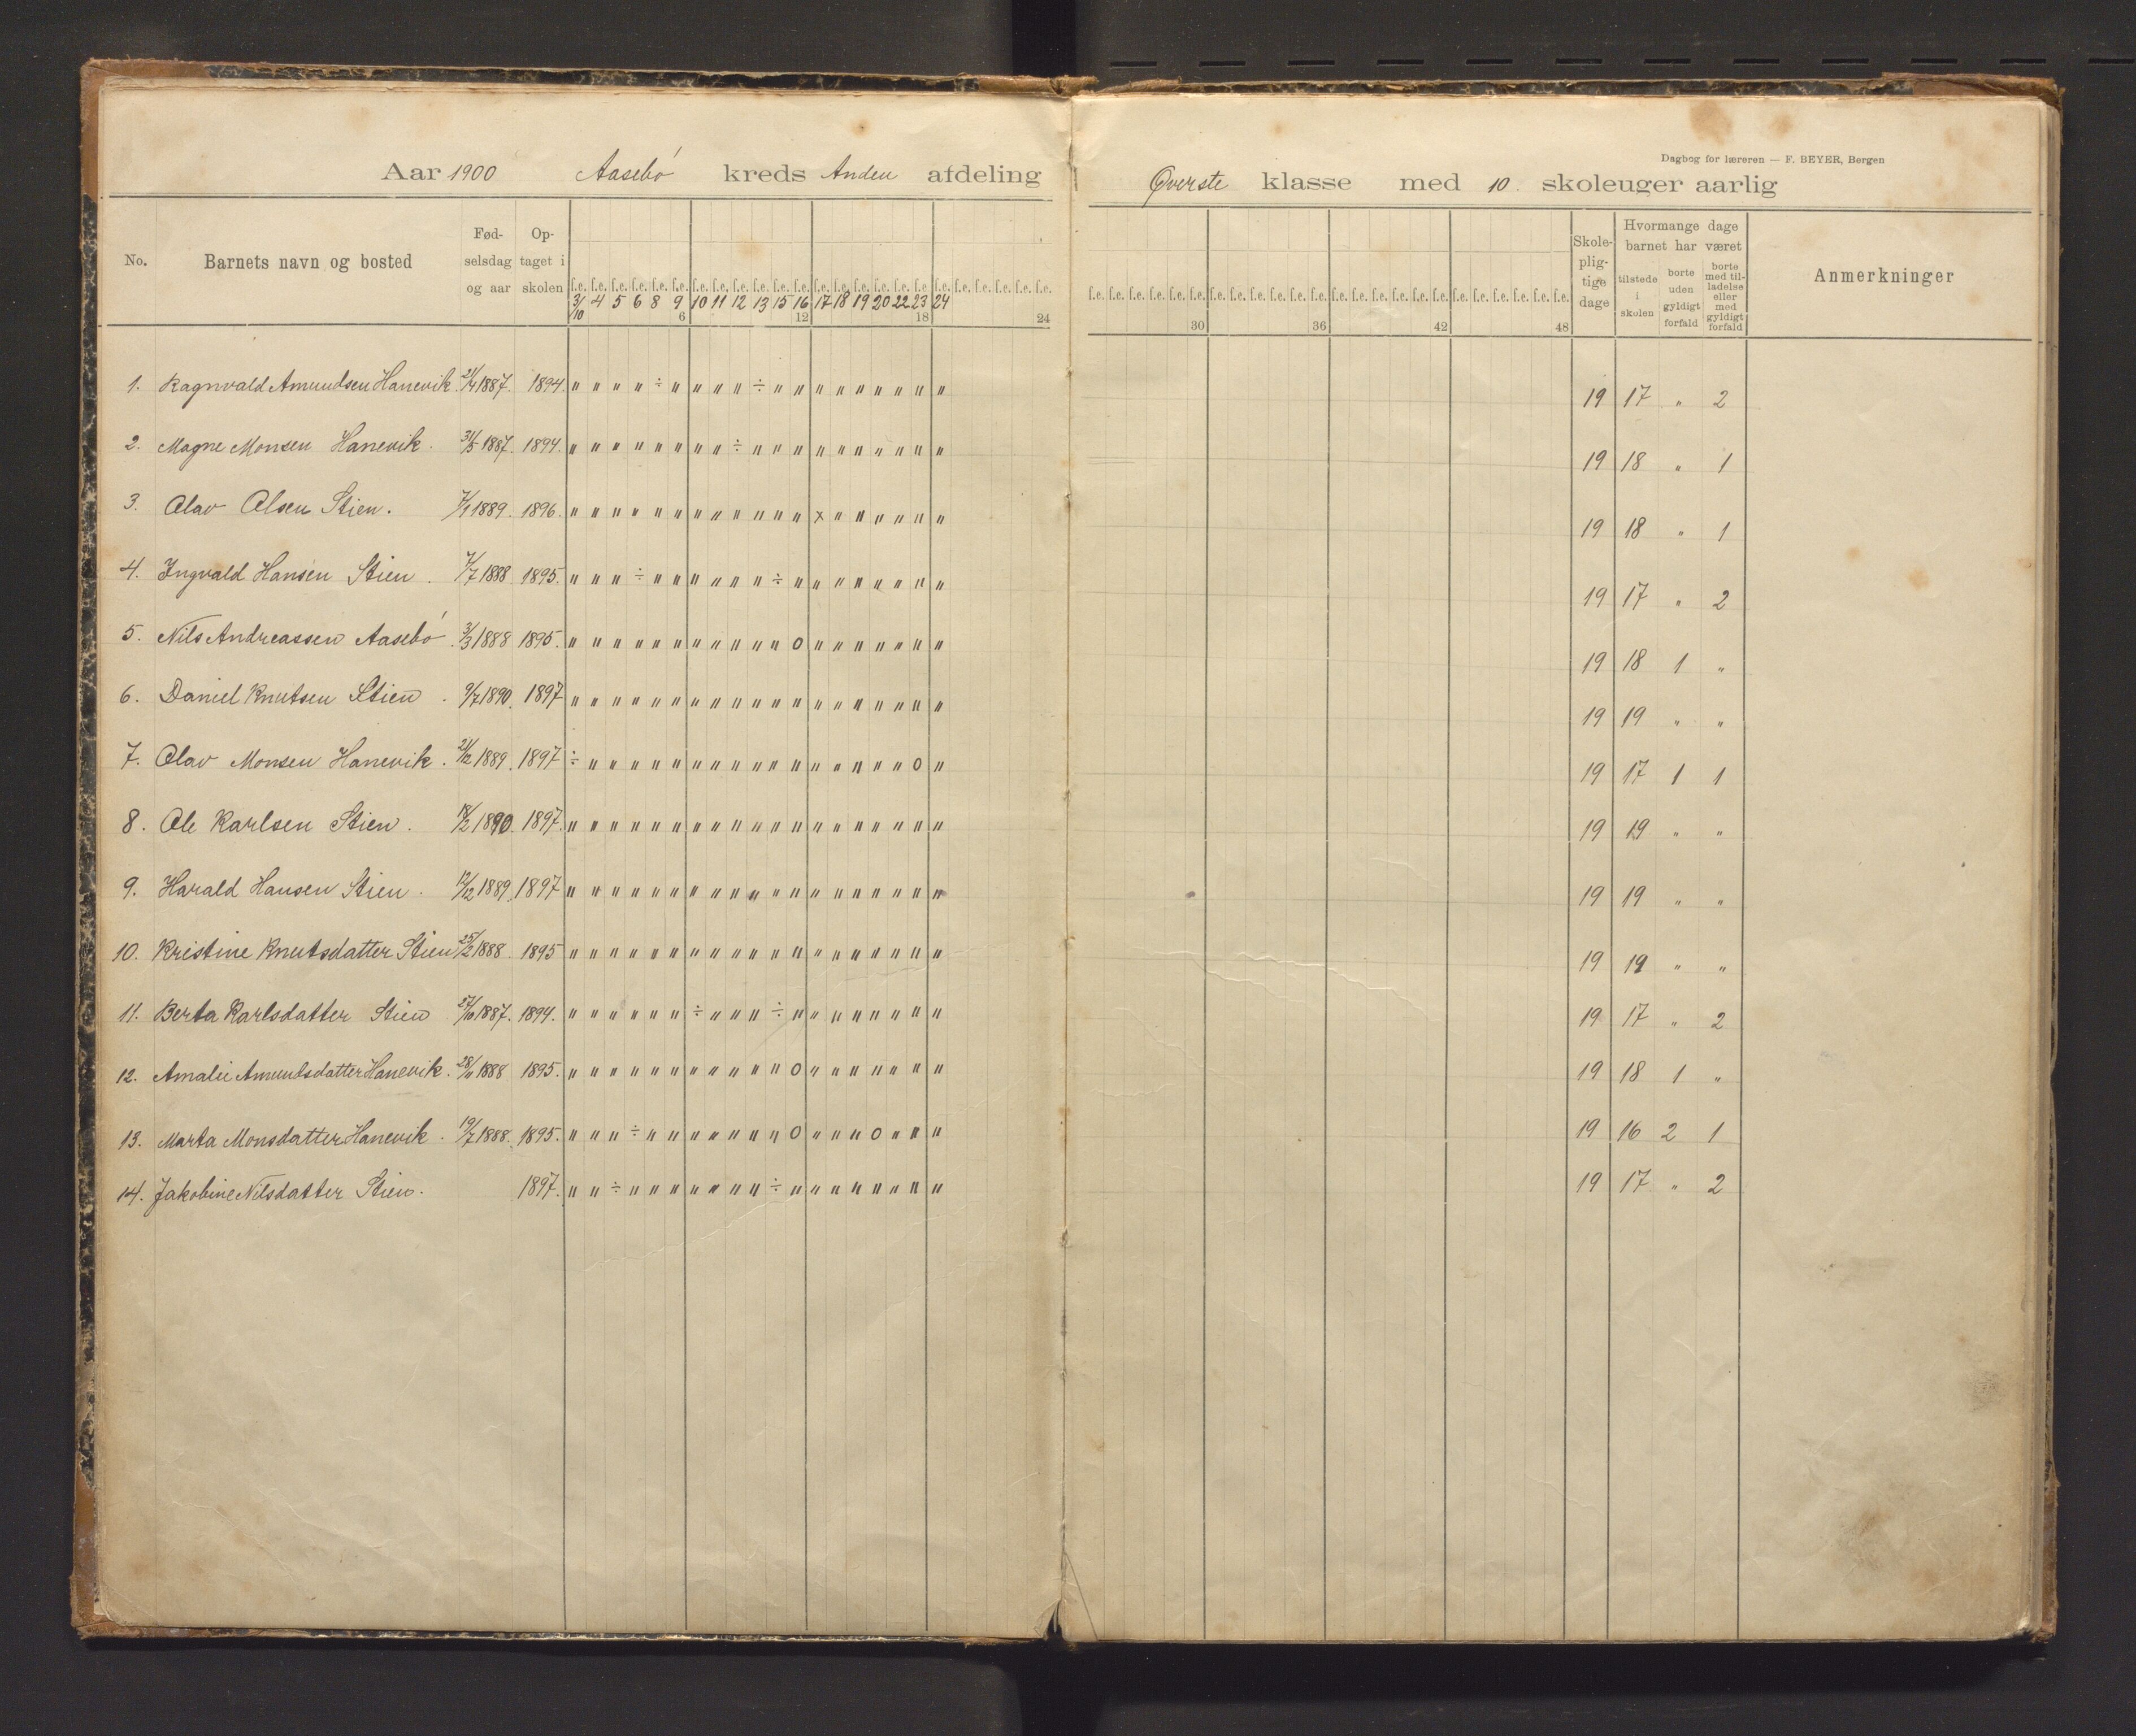 Dagbog for læreren — F. BEYER, Bergen
Aar 1900 Aasebø kreds Anden afdeling
Øverste klasse med 10. skoleuger aarlig
No. Barnets navn og bosted Fødselsdag og aar Optaget i skolen
f.e. f.e. f.e. f.e. f.e. f.e. f.e. f.e. f.e. f.e. f.e. f.e. f.e. f.e. f.e. f.e. f.e. f.e. f.e. f.e. f.e. f.e. f.e. f.e.
3/10 4 5 6 8 9 10 11 12 13 15 16 17 18 19 20 22 23 24
6 12 18 24
30 36 42 48
Skolepligtige dage
Hvormange dage barnet har været
tilstede i skolen
borte uden gyldigt forfald
borte med tilladelse eller med gyldigt forfald
Anmerkninger
1. Ragnvald Amundsen Hanevik. 21/4 1887. 1894. " " " " ÷ " " " " ÷ " " " " " " " " " 19 17 " 2
2. Magne Monsen Hanevik. 31/5 1887. 1894. " " " " " " " " ÷ " " " " " " " " " " 19 18 " 1
3. Olav Olsen Stien. 7/1 1889. 1896. " " " " " " " " " " " " x " " " " " " 19 18 " 1
4. Ingvald Hansen Stien. 7/7 1888 1895. " " " ÷ " " " " " " ÷ " " " " " " " " 19 17 " 2
5. Nils Andreassen Aasebø. 3/3 1888 1895. " " " " " " " " " " " o " " " " " " " 19 18 1 "
6. Daniel Knutsen Stien. 9/7 1890. 1897 " " " " " " " " " " " " " " " " " " " 19 19 " "
7. Olav Monsen Hanevik. 21/2 1889. 1897 ÷ " " " " " " " " " " " " " " " " o " 19 17 1 1
8. Ole Karlsen Stien. 18/2 1890. 1897. " " " " " " " " " " " " " " " " " " " 19 19 " "
9. Harald Hansen Stien. 12/12 1889. 1897 " " " " " " " " " " " " " " " " " " " 19 19 " "
10. Kristine Knutsdatter Stien 25/2 1888. 1895 " " " " " " " " " " " " " " " " " " " 19 19 " "
11. Berta Karlsdatter Stien 27/10 1887. 1894. " " " " " " ÷ " " " ÷ " " " " " " " " 19 17 " 2
12. Amalie Amundsdatter Hanevik. 28/11 1888 1895. " " " " " " " " " " " o " " " " " " " 19 18 1 "
13. Marta Monsdatter Hanevik. 19/7 1888. 1895. " " " ÷ " " " " " " " o " " " o " " " 19 16 2 1
14. Jakobine Nilsdatter Stien. 1897. " " ÷ " " " " " " " ÷ " " " " " " " " 19 17 " 2